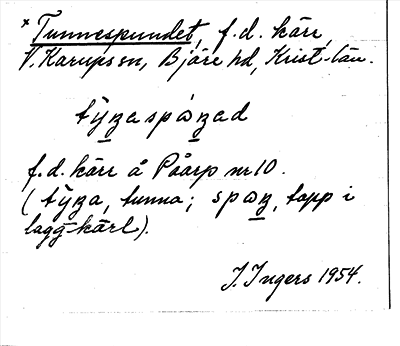 * Tunnespundet, f.d. kärr,
V. Karups sn, Bjäre hd, Krist. län.
f.d. kärr å Påarp nr 10.
tunna; tapp i
laggkärl).
J. Ingers 1954.